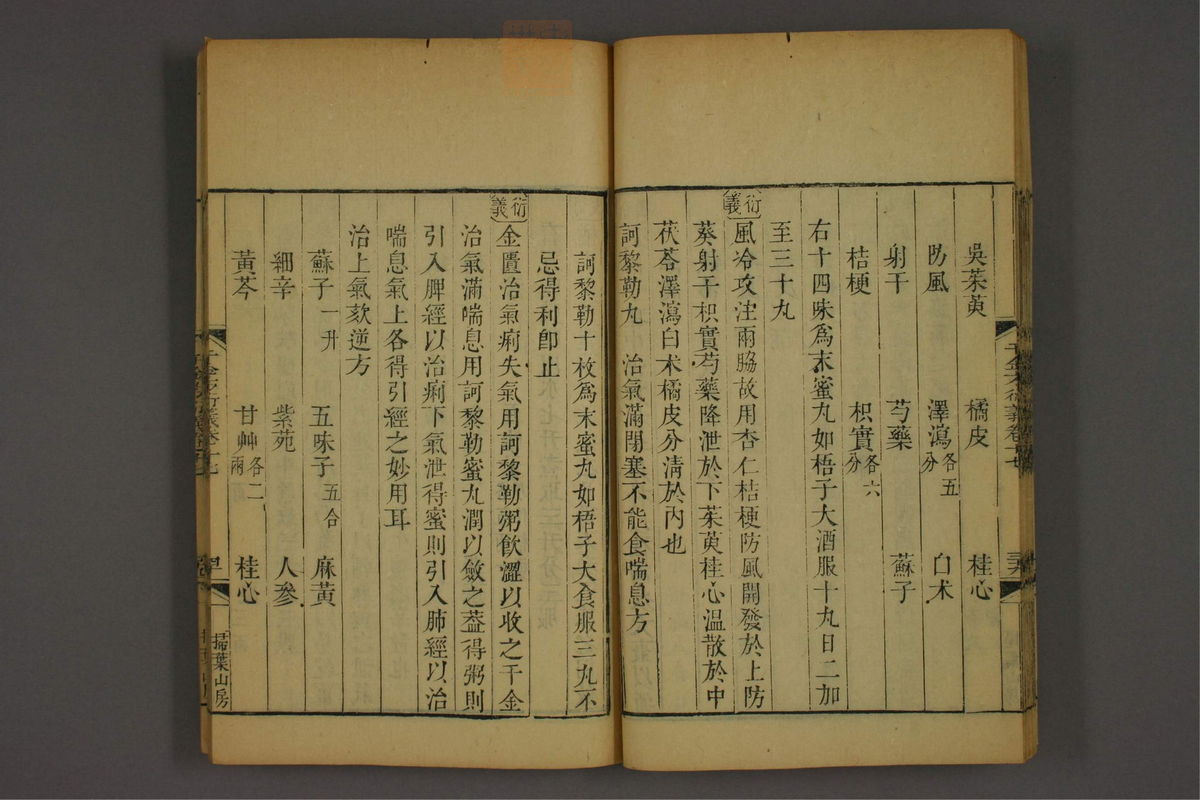 吳茱萸　橘皮　桂心
防風　澤瀉各五分　白朮
射干　芍藥　蘇子
桔梗　枳實各六分
右十四味爲末蜜丸如梧子大酒服十丸日二加
至三十丸
衍義
風冷攻注兩脇故用杏仁桔梗防風開發於上防
葵射干枳實芍藥降泄於下茱萸桂心溫散於中
茯苓澤瀉白朮橘皮分清於內也
訶黎勒丸　治氣滿閉塞不能食喘息方
訶黎勒十枚爲末蜜丸如梧子大食服三丸不
忌得利即止
衍義
金匱治氣痢失氣用訶黎勒粥飲澀以收之千金
治氣滿喘息用訶黎勒蜜丸潤以斂之葢得粥則
引入脾經以治痢下氣泄得蜜則引入肺經以治
喘息氣上各得引經之妙用耳
治上氣欬逆方
蘇子一升　五味子五合　麻黃
細辛　紫苑　人參
黃芩　甘艸各二兩　桂心
千金方衍義卷十七
掃葉山房